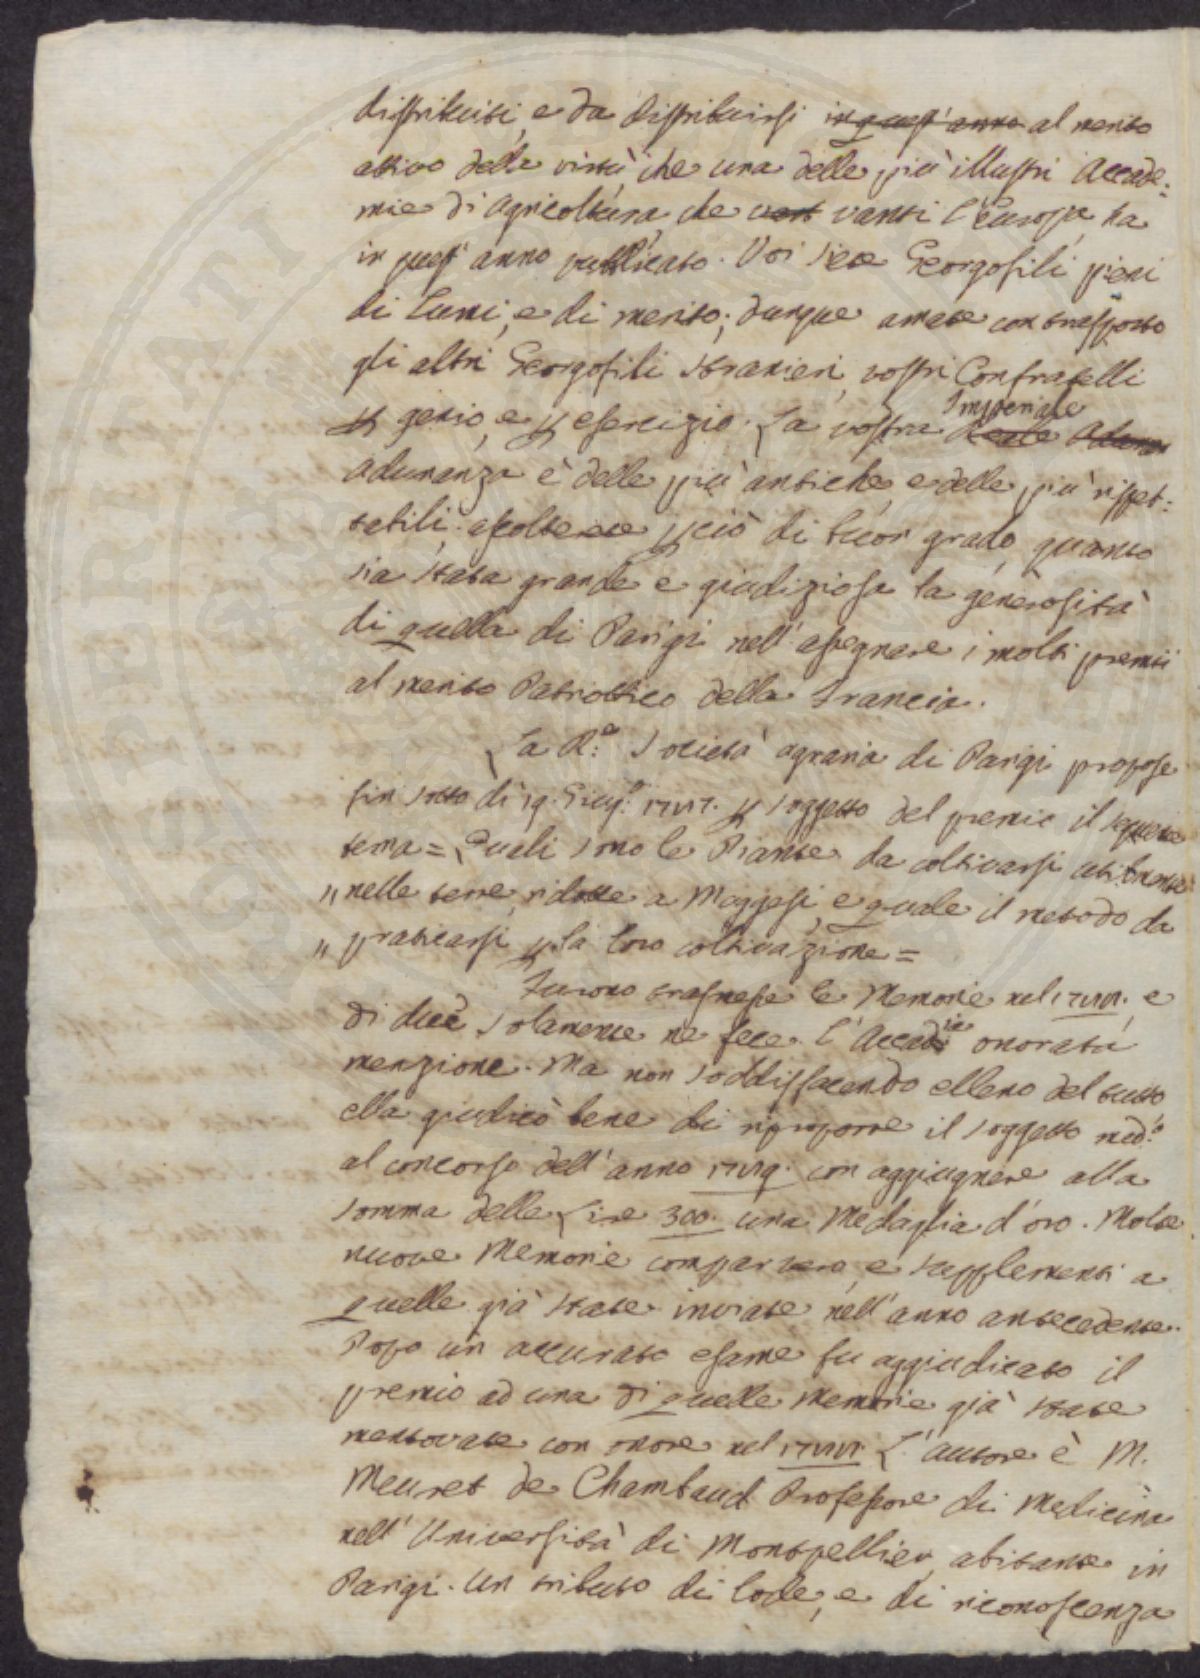 distribuiti, e da distribuirsi in quest'anno al merito
attivo della virtù, che una delle più illustri Accade:
mie di Agricoltura, che vant vanti l'Europa, ha
in quest'anno pubblicato. Voi siete Georgofili pieni
di Lumi, e di merito; dunque amate con trasporto
gli altri Georgofili stranieri, vostri Confratelli
p genio, e p esercizio. La vostra Reale Aduna
Imperiale
Adunanza è delle più antiche, e delle più rispet:
tabili: ascolterete pciò di buon grado, quanto
sia stata grande e giudiziosa la generosità
di quella di Parigi nell'assegnare i molti premii
al merito Patriottico della Francia.
La R.a Società agraria di Parigi propose
fin sotto dì 19. Giug.o 1787. p soggetto del premio il seguente
tema =, Quali sono le Piante da coltivarsi utilmente
„ nelle terre ridotte a Maggesi, e quale il metodo da
„ praticarsi p la loro coltivazione =
Furono trasmesse le Memorie nel 1788. e
di due solamente ne fece l'Accad.ia onorata
menzione. Ma non soddisfacendo elleno del tutto
ella giudicò bene di riproporre il soggetto med.o
al concorso dell'anno 1789. con aggiugnere alla
somma delle Lire 300. una Medaglia d'oro. Molte
nuove Memorie comparvero, e supplementi a
quelle già state inviate nell'anno antecedente.
Dopo un accurato esame fu aggiudicato il
premio ad una di quelle Memorie già state
mentovate con onore nel 1788. L'autore è M.
Meuret de Chambaud Professore di Medicina
nell'Università di Montpellier, abitante in
Parigi. Un tributo di lode, e di riconoscenza